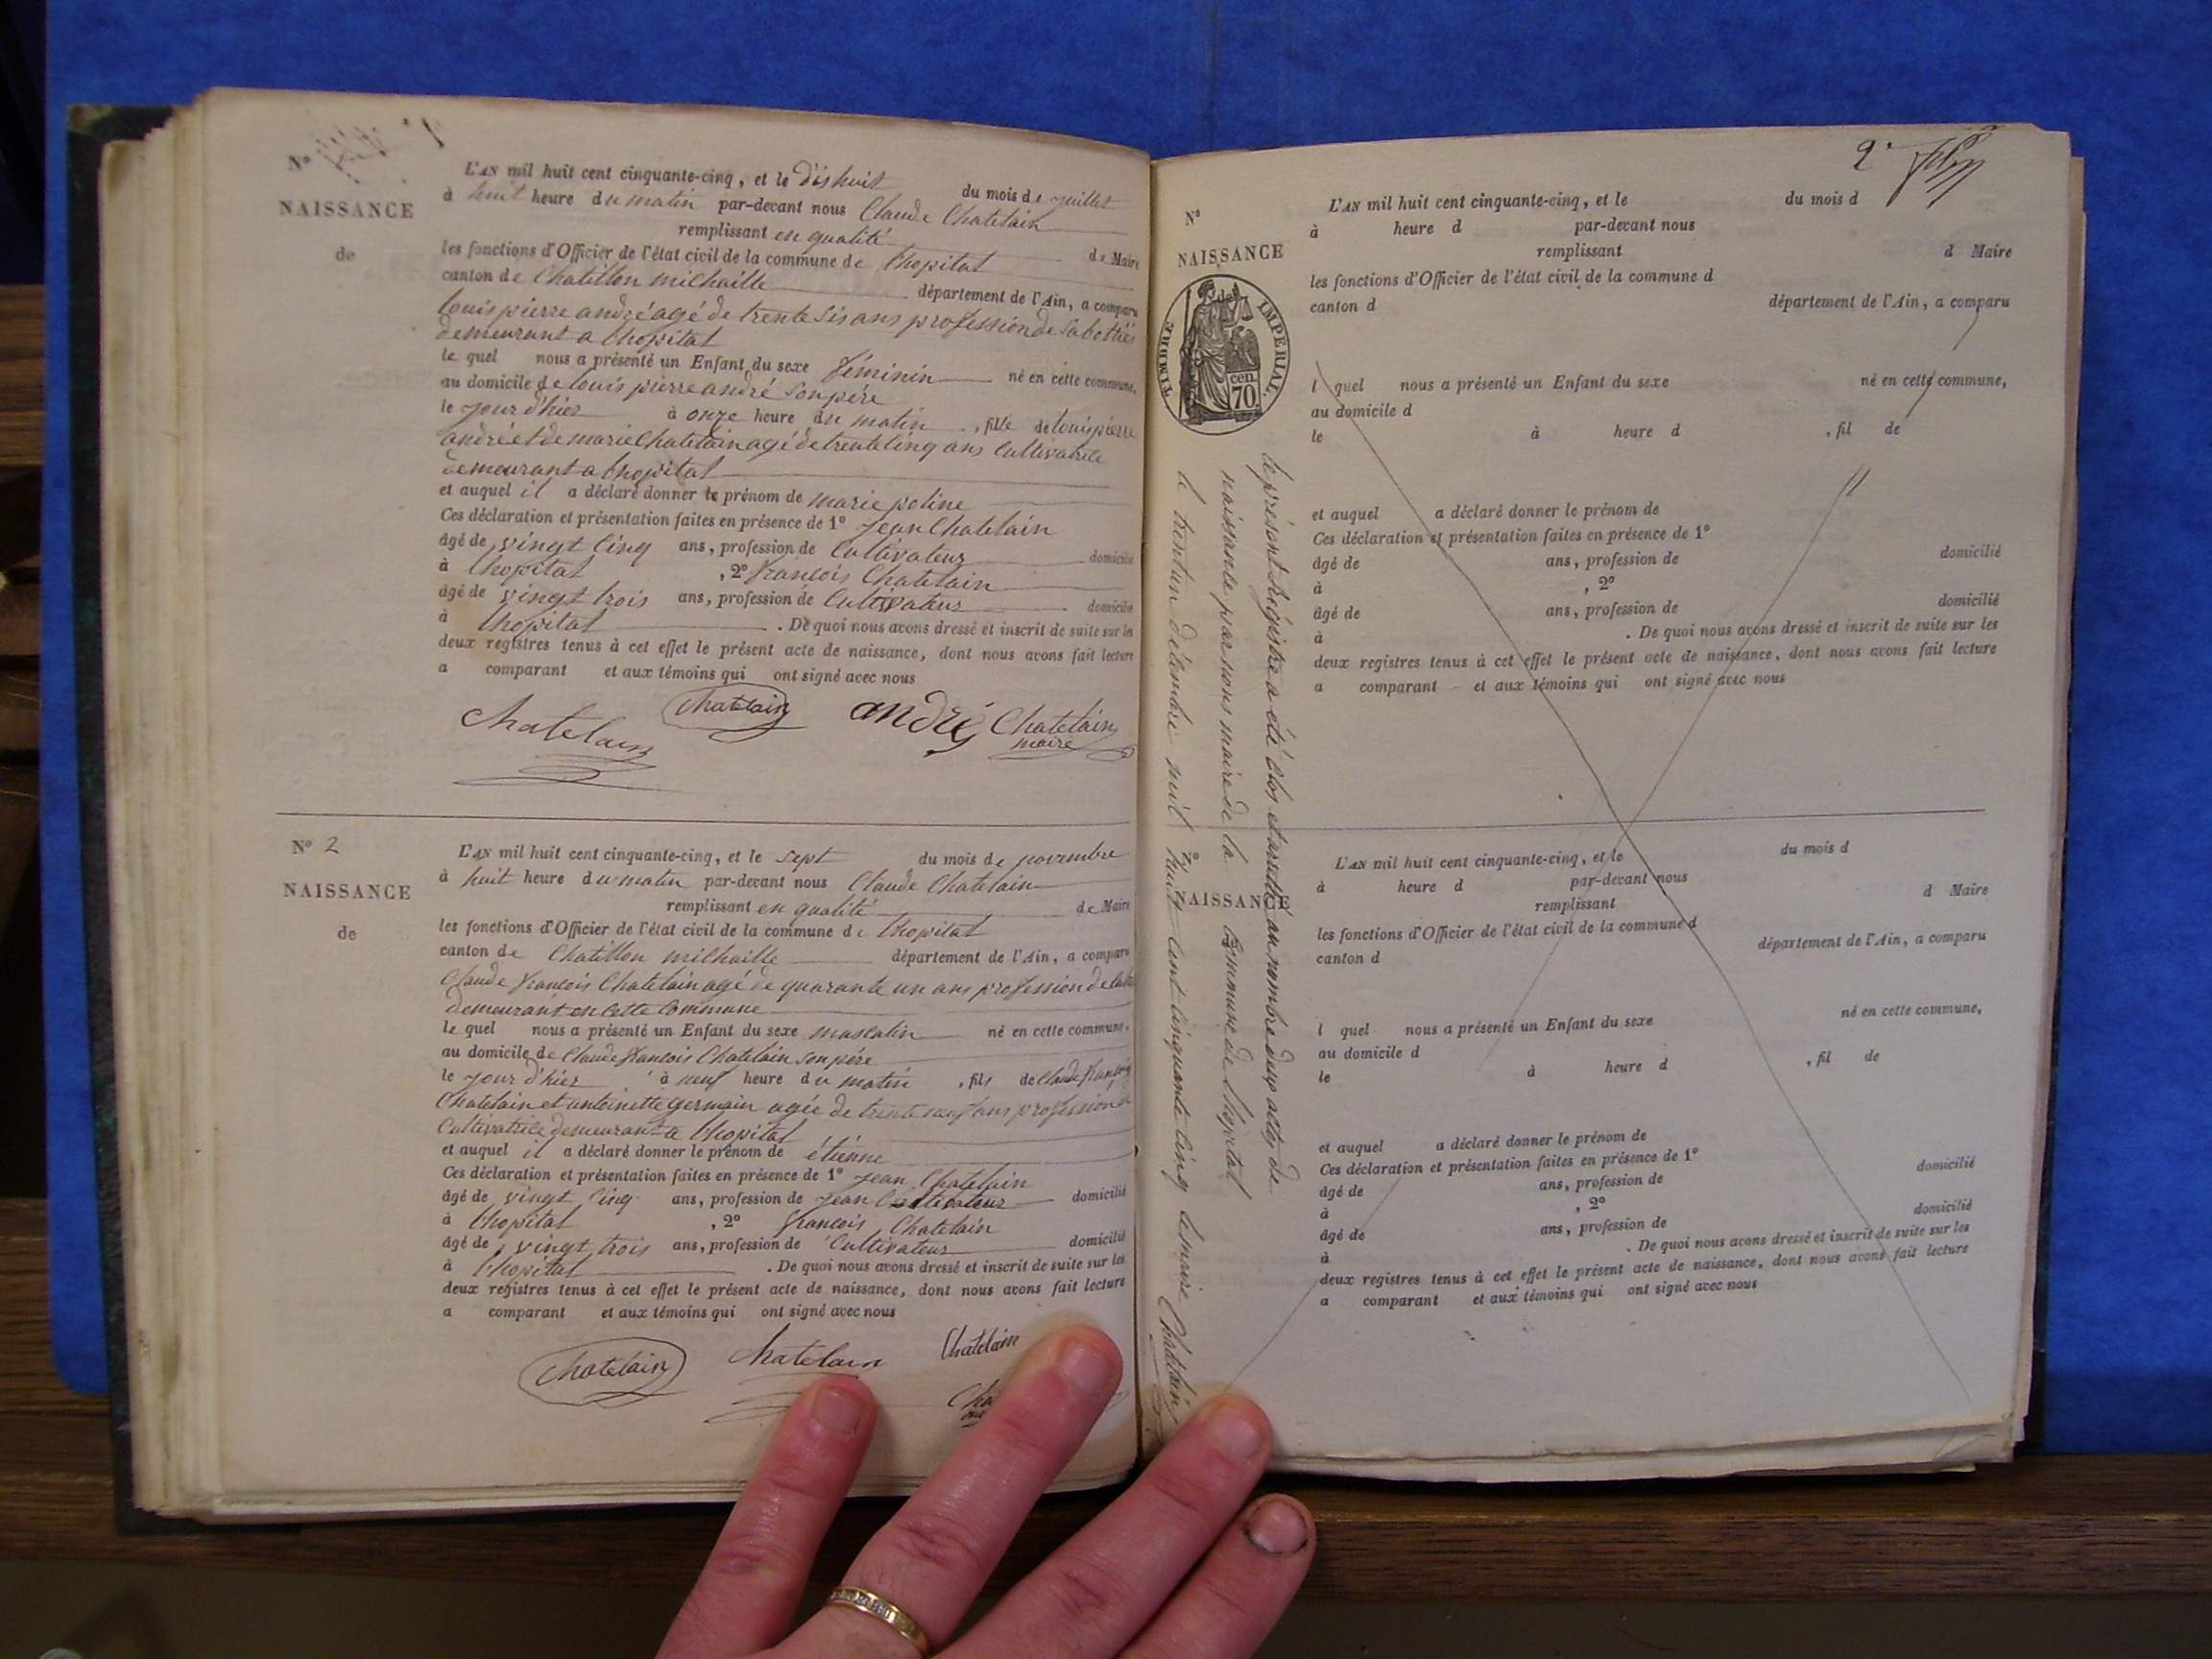 Nº 1
NAISSANCE
de
L'AN mil huit cent cinquante-cinq, et le dishuit du mois de juillet
à huit heure du matin par-devant nous Claude Chatelain
remplissant en qualité de Maire
les fonctions d'Officier de l'état civil de la commune de lhopital
canton de Chatillon milhaille département de l'Ain, a comparu
louis pierre andré agé de trente sis ans profession de sabottié
demeurant a lhopital
le quel nous a présenté un Enfant du sexe féminin né en cette commune,
au domicile de louis pierre andré son père
le jour d'hier à onze heure du matin, fille de louis pierre
andré et de marie Chatelain agé de trente cinq ans Cultivatrice
demeurant a lhopital
et auquel il a déclaré donner le prénom de marie poline
Ces déclaration et présentation faites en présence de 1º Jean Chatelain
âgé de vingt cinq ans, profession de Cultivateur domicilié
à lhopital, 2º francois Chatelain
âgé de vingt trois ans, profession de Cultivateur domicilié
à lhopital. De quoi nous avons dressé et inscrit de suite sur les
deux registres tenus à cet effet le présent acte de naissance, dont nous avons fait lecture
a comparant et aux témoins qui ont signé avec nous
Chatelain Chatelain andré Chatelain
maire
Nº 2
NAISSANCE
de
L'AN mil huit cent cinquante-cinq, et le sept du mois de novembre
à huit heure du matin par-devant nous Claude Chatelain
remplissant en qualité de Maire
les fonctions d'Officier de l'état civil de la commune de lhopital
canton de Chatillon milhaille département de l'Ain, a comparu
Claude francois Chatelain agé de quarante un ans profession de
demeurant en cette Commune
le quel nous a présenté un Enfant du sexe masculin né en cette commune,
au domicile de Claude francois Chatelain son père
le jour d'hier à neuf heure du matin, fils de Claude francois
Chatelain et antoinette germain agée de trente neuf ans profession de
Cultivatrice demeurant a lhopital
et auquel il a déclaré donner le prénom de étienne
Ces déclaration et présentation faites en présence de 1º Jean Chatelain
âgé de vingt cinq ans, profession de Jean Cultivateur domicilié
à lhopital, 2º francois Chatelain
âgé de vingt trois ans, profession de Cultivateur domicilié
à lhopital. De quoi nous avons dressé et inscrit de suite sur les
deux registres tenus à cet effet le présent acte de naissance, dont nous avons fait lecture
a comparant et aux témoins qui ont signé avec nous
Chatelain Chatelain Chatelain
2e
Nº
NAISSANCE
de
TIMBRE IMPÉRIAL
70 cen.
L'AN mil huit cent cinquante-cinq, et le du mois d
à heure d par-devant nous
remplissant d Maire
les fonctions d'Officier de l'état civil de la commune d
canton d département de l'Ain, a comparu
l quel nous a présenté un Enfant du sexe né en cette commune,
au domicile d
le à heure d, fil de
et auquel a déclaré donner le prénom de
Ces déclaration et présentation faites en présence de 1º
âgé de ans, profession de domicilié
à, 2º
âgé de ans, profession de domicilié
à. De quoi nous avons dressé et inscrit de suite sur les
deux registres tenus à cet effet le présent acte de naissance, dont nous avons fait lecture
a comparant et aux témoins qui ont signé avec nous
le présent Régistre a été clos et arretté au nombre deux actes de
naissance par nous maire de la Commune de lhopital
le trente un décembre mil huit cent cinquante cinq
Chatelain
NAISSANCE
L'AN mil huit cent cinquante-cinq, et le du mois d
à heure d par-devant nous
remplissant d Maire
les fonctions d'Officier de l'état civil de la commune d
canton d département de l'Ain, a comparu
l quel nous a présenté un Enfant du sexe né en cette commune,
au domicile d
le à heure d, fil de
et auquel a déclaré donner le prénom de
Ces déclaration et présentation faites en présence de 1º
âgé de ans, profession de domicilié
à, 2º
âgé de ans, profession de domicilié
à. De quoi nous avons dressé et inscrit de suite sur les
deux registres tenus à cet effet le présent acte de naissance, dont nous avons fait lecture
a comparant et aux témoins qui ont signé avec nous